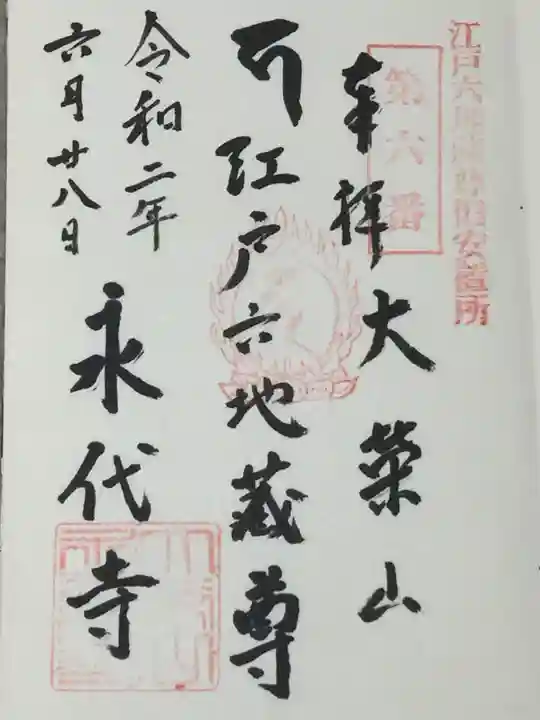 江戸六地蔵尊旧安置所
第六番
奉拝 大榮山
江戸六地蔵尊
永代寺
令和二年
六月廿八日